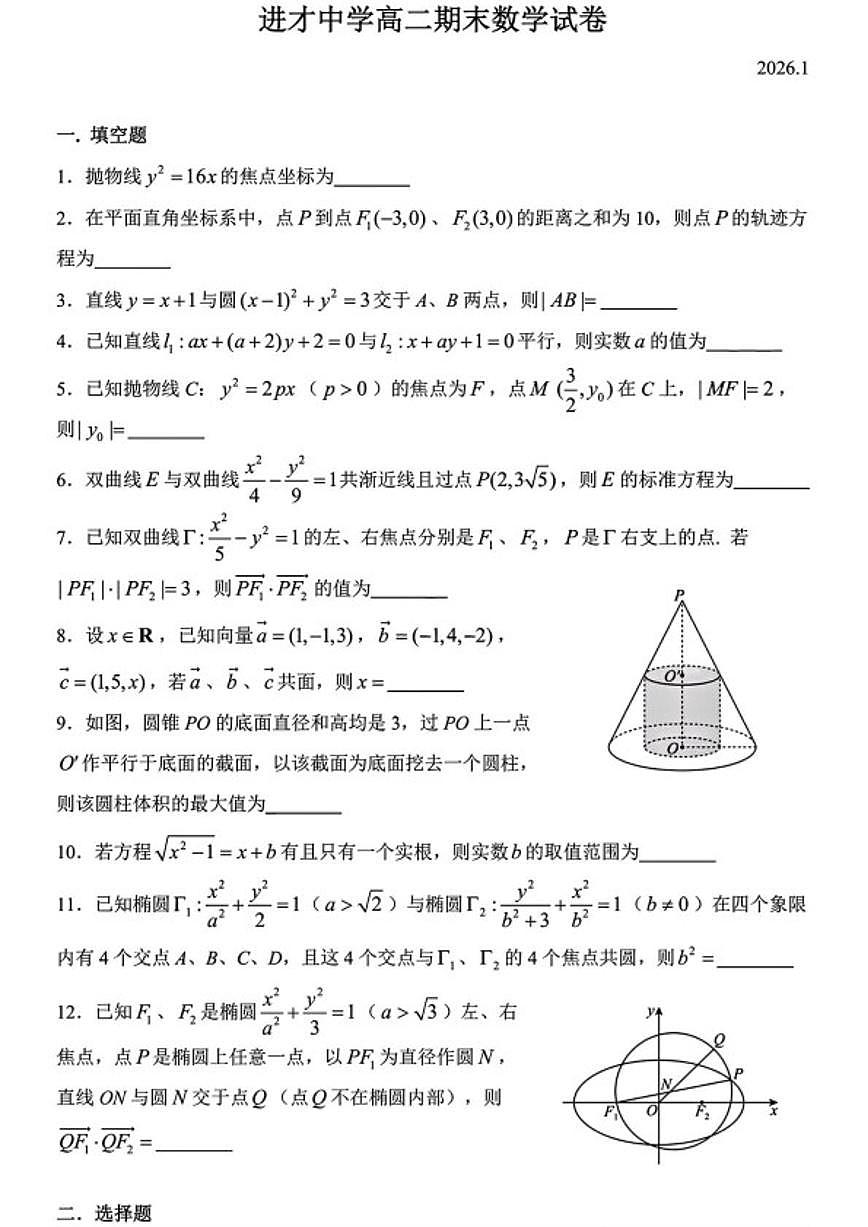 进才中学高二期末数学试卷
2026.1
一. 填空题
1. 抛物线 y² =16x 的焦点坐标为______
2. 在平面直角坐标系中，点 P 到点 F₁(−3,0)、F₂(3,0) 的距离之和为 10，则点 P 的轨迹方
程为______
3. 直线 y = x+1 与圆 (x−1)² + y² = 3 交于 A、B 两点，则 | AB |= ______
4. 已知直线 l₁ : ax+(a+2)y+2=0 与 l₂ : x+ay+1=0 平行，则实数 a 的值为______
5. 已知抛物线 C：y² = 2px （p>0）的焦点为 F，点 M (3/2, y₀) 在 C 上，| MF |= 2，
则 | y₀ |= ______
6. 双曲线 E 与双曲线 x²/4 − y²/9 = 1 共渐近线且过点 P(2,3√5)，则 E 的标准方程为______
7. 已知双曲线 Γ: x²/5 − y² = 1 的左、右焦点分别是 F₁、F₂，P 是 Γ 右支上的点. 若
| PF₁ |·| PF₂ |= 3，则 PF₁→·PF₂→ 的值为______
8. 设 x∈R，已知向量 a→ = (1,−1,3)，b→ = (−1,4,−2)，
c→ = (1,5,x)，若 a→、b→、c→ 共面，则 x = ______
9. 如图，圆锥 PO 的底面直径和高均是 3，过 PO 上一点
O' 作平行于底面的截面，以该截面为底面挖去一个圆柱，
则该圆柱体积的最大值为______
P
O'
O
10. 若方程 √(x²−1) = x+b 有且只有一个实根，则实数 b 的取值范围为______
11. 已知椭圆 Γ₁ : x²/a² + y²/2 = 1（a>√2）与椭圆 Γ₂ : y²/(b²+3) + x²/b² = 1（b≠0）在四个象限
内有 4 个交点 A、B、C、D，且这 4 个交点与 Γ₁、Γ₂ 的 4 个焦点共圆，则 b² = ______
12. 已知 F₁、F₂ 是椭圆 x²/a² + y²/3 = 1（a>√3）左、右
焦点，点 P 是椭圆上任意一点，以 PF₁ 为直径作圆 N，
直线 ON 与圆 N 交于点 Q（点 Q 不在椭圆内部），则
QF₁→·QF₂→ = ______
y
Q
P
N
F₁
O
F₂
x
二. 选择题